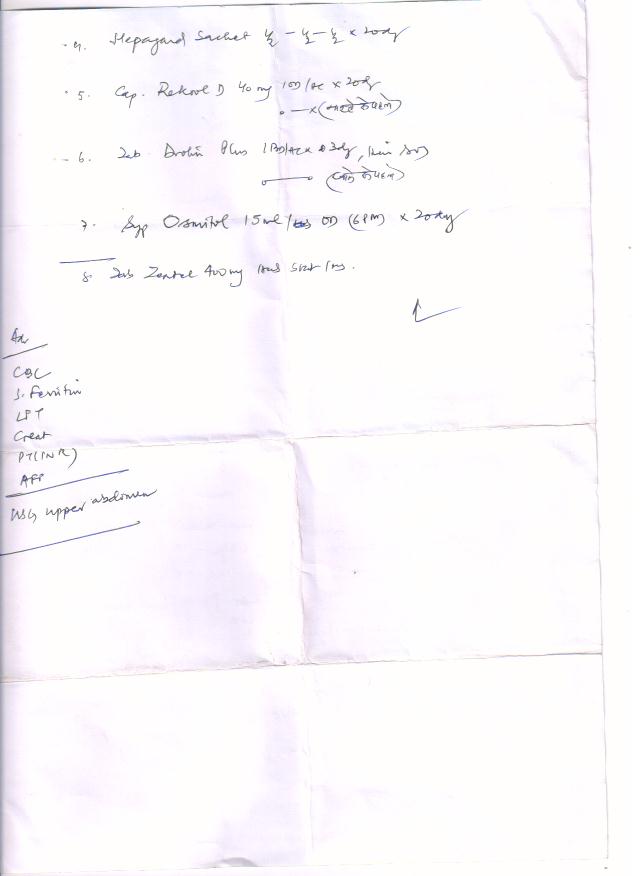 4. Hepagard Sachet ½ - ½ - ½ x 20dy
5. Cap. Rekool D 40mg 1OD/AC x 20dy
(नाश्ते से पहले)
6. Tab Drotin Plus 1BD/AC x 3dy,
(खाने से पहले)
7. Syp Osmitol 15ml/ OD (6PM) x 20dy
8. Tab Zentel 400mg stat
Adv
CBC
S. Ferritin
LFT
Creat
PT(INR)
AFP
USG upper abdomen